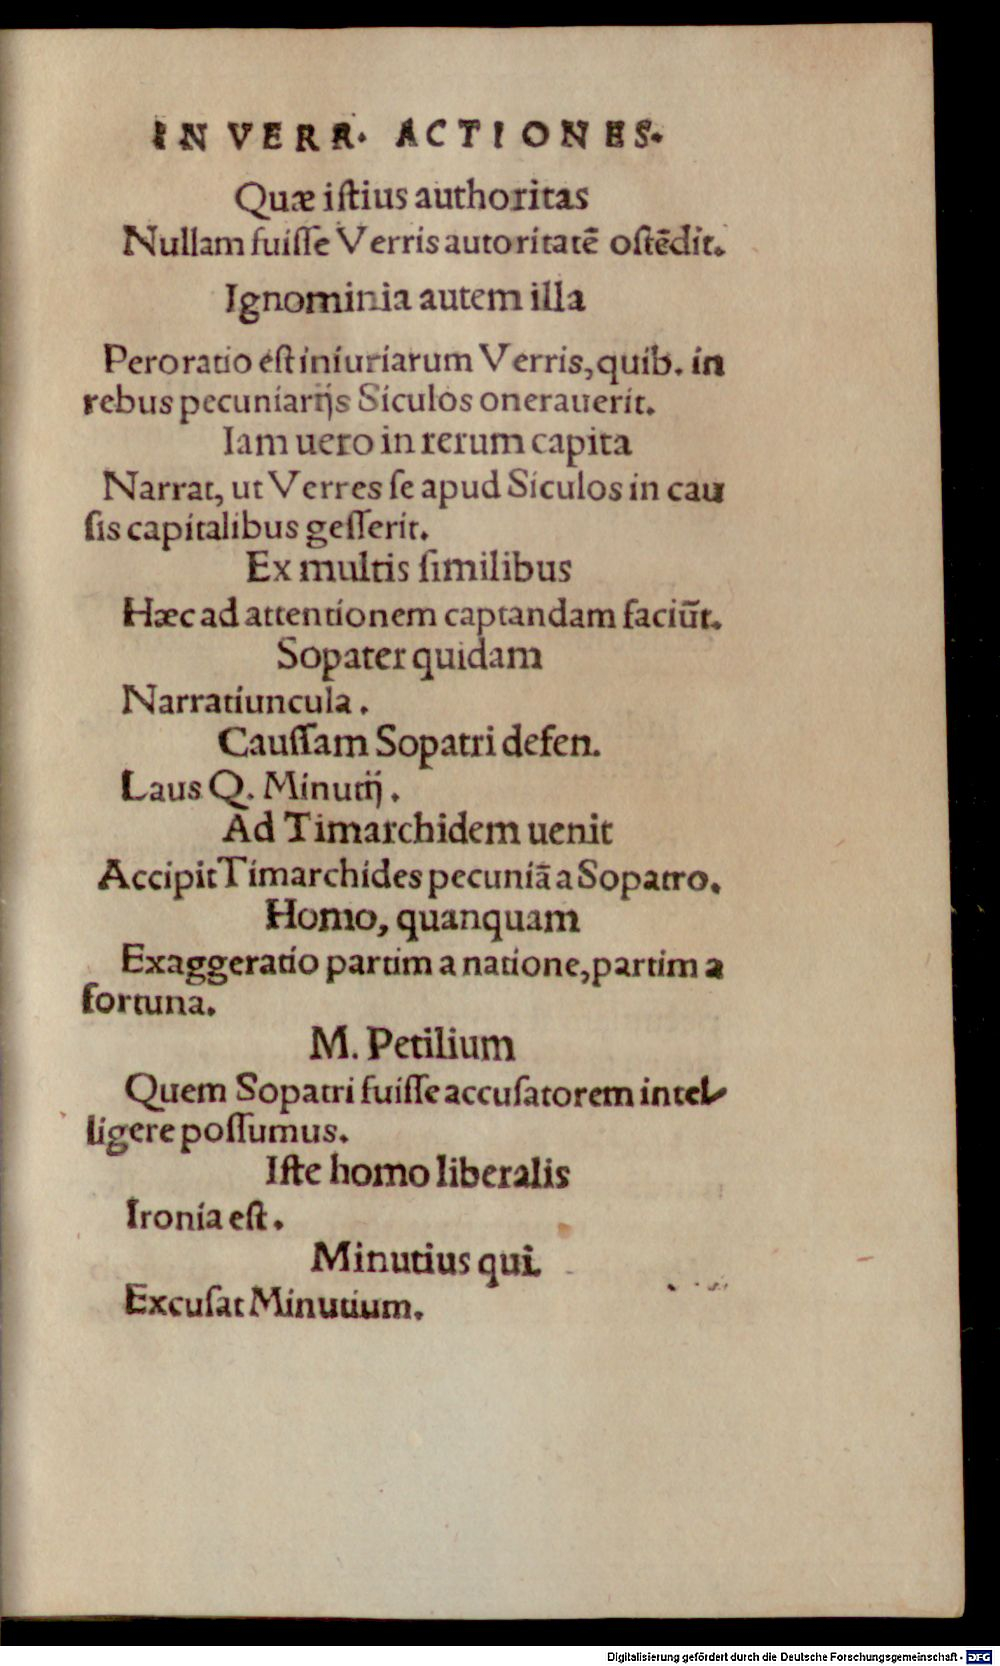 IN VERR. ACTIONES.
Quæ iſtius authoritas
Nullam fuiſſe Verris autoritatē oſtēdit.
Ignominia autem illa
Peroratio eſt iniuriarum Verris, quib. in
rebus pecuniarijs Siculos onerauerit.
Iam uero in rerum capita
Narrat, ut Verres ſe apud Siculos in cau
ſis capitalibus geſſerit.
Ex multis ſimilibus
Hæc ad attentionem captandam faciūt.
Sopater quidam
Narratiuncula.
Cauſſam Sopatri defen.
Laus Q. Minutij.
Ad Timarchidem uenit
Accipit Timarchides pecuniā a Sopatro.
Homo, quanquam
Exaggeratio partim a natione, partim a
fortuna.
M. Petilium
Quem Sopatri fuiſſe accuſatorem intel-
ligere poſſumus.
Iſte homo liberalis
Ironia eſt.
Minutius qui
Excuſat Minutium.
Digitalisierung gefördert durch die Deutsche Forschungsgemeinschaft - DFG